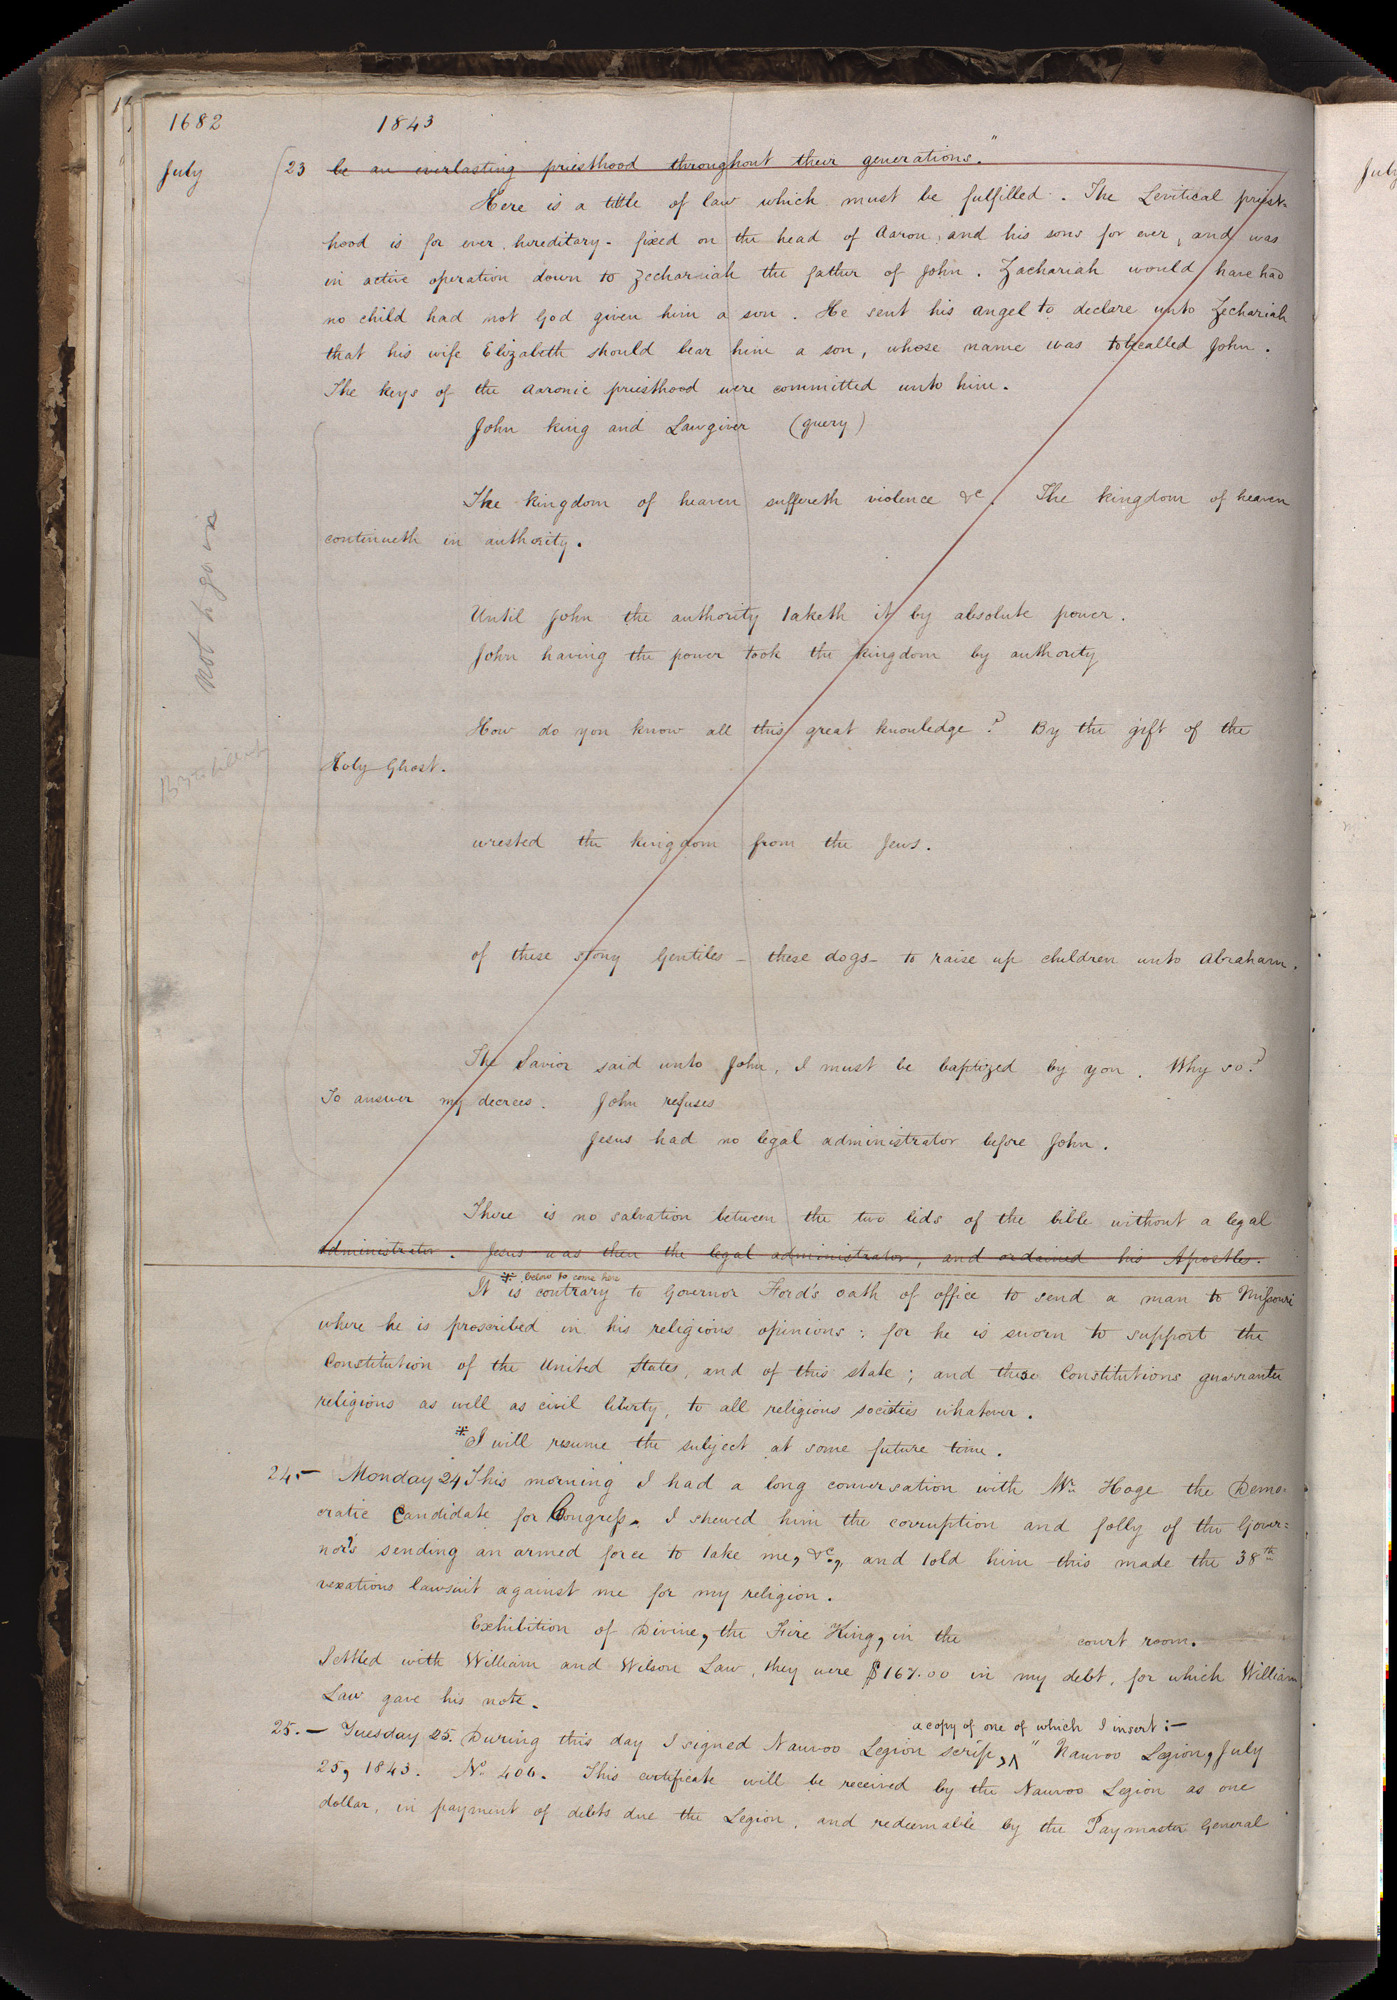 1682 1843
July 23 be an everlasting priesthood throughout their generations."
Here is a tittle of law which must be fulfilled. The Levitical priest-
hood is for ever hereditary- fixed on the head of Aaron, and his sons for ever, and was
in active operation down to Zechariah the father of John. Zachariah would have had
no child had not God given him a son. He sent his angel to declare unto Zechariah
that his wife Elizabeth should bear him a son, whose name was to be called John.
The keys of the Aaronic priesthood were committed unto him.
John King and Lawgiver (query)
The kingdom of heaven suffereth violence &c. The kingdom of heaven
continueth in authority.
Not to go in
Until John the authority taketh it by absolute power.
John having the power took the kingdom by authority
How do you know all this great knowledge? By the gift of the
Holy Ghost.
wrested the kingdom from the Jews.
of these stony Gentiles - these dogs - to raise up children unto Abraham.
The Savior said unto John, I must be baptized by you. Why so?
To answer my decrees. John refuses
Jesus had no legal administrator before John.
There is no salvation between the two lids of the bible without a legal
administrator. Jesus was then the legal administrator, and ordained his Apostles.
* below to come here
It is contrary to Governor Ford's oath of office to send a man to Missouri
where he is proscribed in his religious opinions: for he is sworn to support the
Constitution of the United States, and of this state; and these Constitutions guarrantee
religious as well as civil liberty, to all religious societies whatever.
*I will resume the subject at some future time.
24.- Monday 24 This morning I had a long conversation with Mr. Hoge the Demo-
cratic Candidate for Congress. I shewed him the corruption and folly of the Gover=
nor's sending an armed force to take me, &c., and told him this made the 38th
vexatious lawsuit against me for my religion.
Exhibition of Divine, the Fire King, in the court room.
Settled with William and Wilson Law, they were $167.00 in my debt, for which William
Law gave his note.
a copy of one of which I insert:-
25.- Tuesday 25. During this day I signed Nauvoo Legion scrip, ^ "Nauvoo Legion, July
25, 1843. No. 406. This certificate will be received by the Nauvoo Legion as one
dollar, in payment of debts due the Legion, and redeemable by the Paymaster General
July